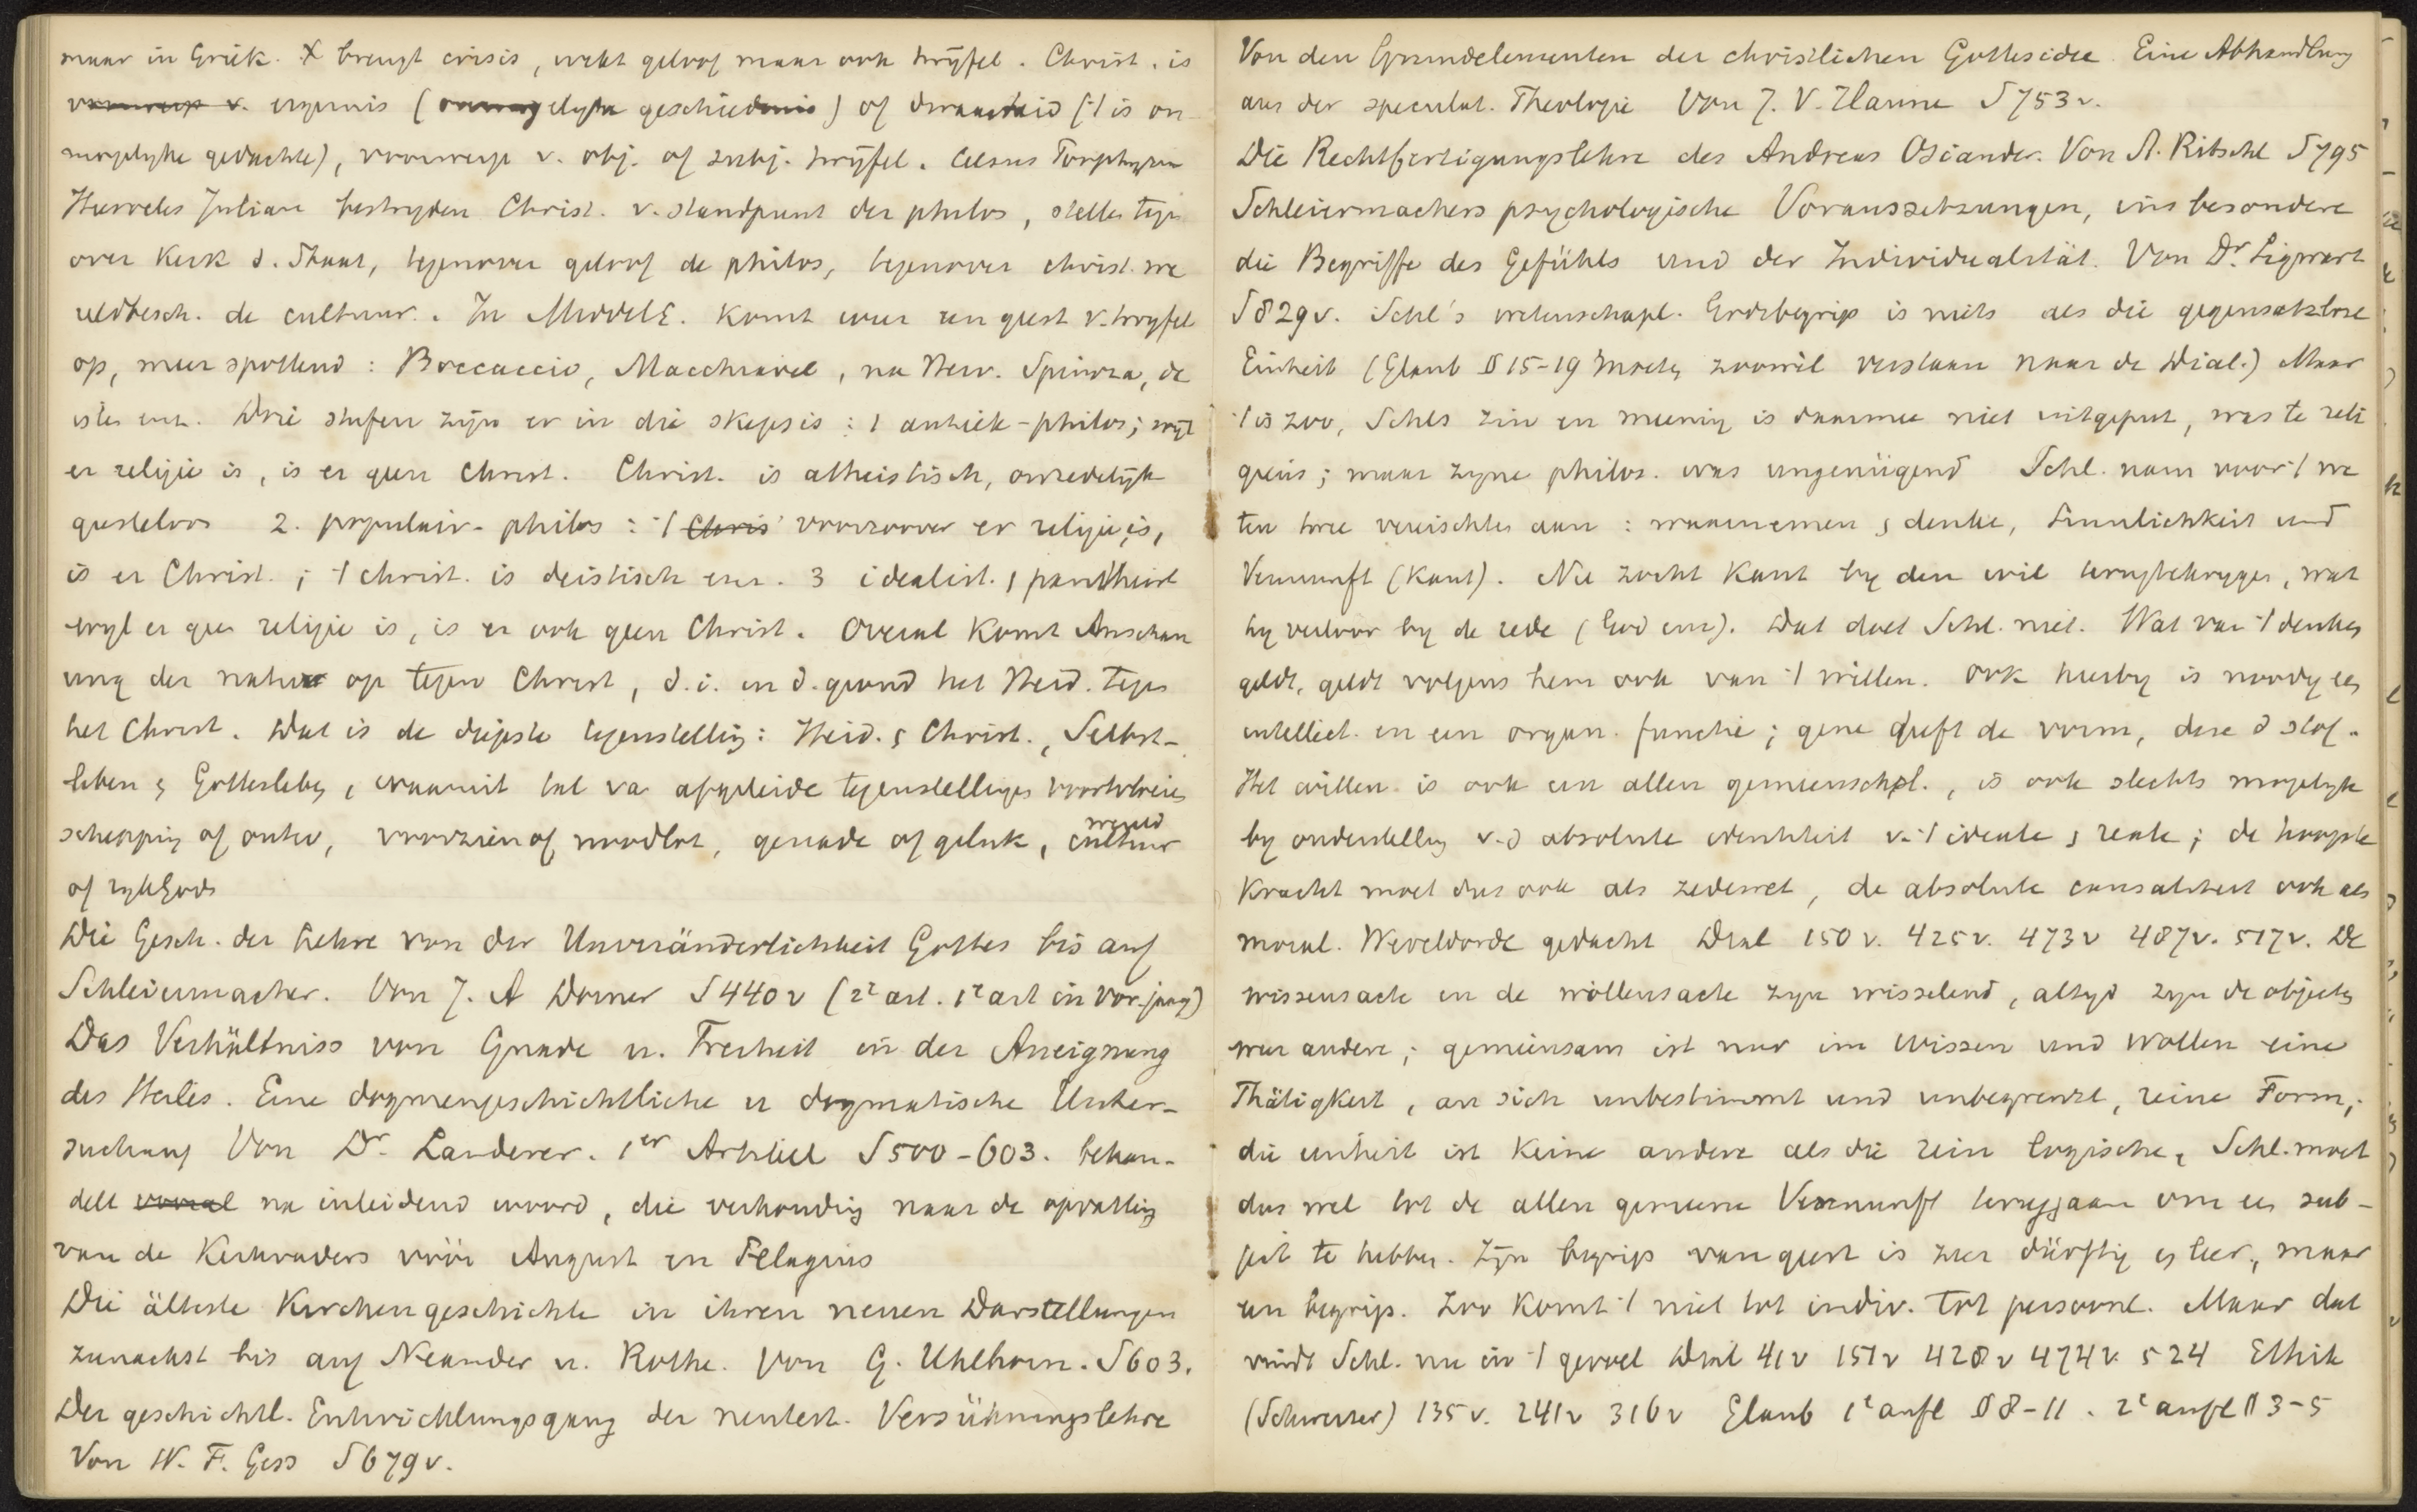 maar in Griek. X brengt crisis, wekt geloof maar ook twyfel. Christ. is
voorwerp v. ergernis (onmogelyke geschiedenis) of dwaasheid ('t is on
mogelyke gedachte), voorwerp v. obj. of subj. twyfel. Celsus Porphyrius
Hierocles Julian bestryden Christ. v. standpunt der philos, stelle tegen
over Kerk d. Staat, tegenover geloof de philos, tegenover christ. we
reldbesch. de cultuur. In MiddelE. komt weer een geest v. twyfel
op, meer spottend: Boccaccio, Macchiavel, na Herv. Spinoza, de
isten enz. Drie stufen zijn er in die skepsis: 1 antiek-philos; wyl
er religie is, is er geen Christ. Christ. is atheistisch, onzedelyk
gesteloos 2. populair-philos: 't Chris voorzoover er religie is,
is er Christ.; 't christ. is deistisch enz. 3 idealist. , pantheist
wyl er geen religie is, is er ook geen Christ. Overal komt Anschau
ung der natur op tegen Christ, d.i. in d. grond het Heid. tegen
het Christ. Dat is de diepste tegenstelling: Heid. & Christ., Selbst-
leben & Gottesleben, waaruit tal va afgeleide tegenstellingen voortvloeien
schepping of ontw, voorzien of noodlot, genade of geluk, wereld cultuur
of rykGods
Die Gesch. der Lehre von der Unveränderlichkeit Gottes bis auf
Schleiermacher. Von J. A Dorner S 440 v (2e art. 1e art in vor. jaarg)
Das Verhältniss von Gnade u. Freiheit in der Aneignung
des Heiles. Eine dogmengeschichtliche u dogmatische Unter-
suchung Von Dr. Landerer. 1er Artikel S 500-603. behan-
delt vooral na inleidend woord, die verhouding naar de opvatting
van de Kerkvaders vóór August en Pelagius
Die älteste Kirchengeschichte in ihren neuen Darstellungen
zunachst bis auf Neander u. Rothe. Von G. Uhlhorn. S 603.
Der geschichtl. Entwicklungsgang der neutest. Versöhnungslehre
Von W. F. Gess S 679 v.
Von den Grundelementen der christlichen Gottesidee. Eine Abhandlung
aus der speculat. Theologie Von J. W. Hanne S 753 v.
Die Rechtfertigungslehre des Andreas Osiander. Von A. Ritschl S 795
Schleiermachers psychologische Voraussetzungen, ins besondere
die Begriffe des Gefühls und der Individualität. Von Dr. Sigwart
S 829 v. Schl's wetenschapl. Godsbegrip is niets als die gegensatzlose
Einheit (Glaub § 15-19 moeten zoowel verstaan naar de Dial.) Maar
't is zoo, Schls zin en meening is daarmee niet uitgeput, was te reli
gieus; maar zyne philos. was ungenügend Schl. nam voor 't we
ten twee vereischten aan: waarnemen & denken, Sinnlichkeit und
Vernunft (Kant). Nu zocht Kant by den wil terugtekrygen, wat
hy verloor by de rede (God enz). Dat doet Schl. niet. Wat van 't denken
geldt, geldt volgens hem ook van 't willen. Ook hierby is noodig een
intellect. en een organ. functie; gene geeft de vorm, deze d stof.
Het willen is ook een allen gemeenschpl., is ook slechts mogelyk
by onderstelling v. d absolute identiteit v. 't ideale & reale; de hoogste
Kracht moet dus ook als zedewet, de absolute causaliteit ook als
moral. Wereldorde gedacht Dial 150 v. 425 v. 473 v 487 v. 517 v. De
wissensacte en de wollensacte zyn wisselend, altyd zyn de objecten
weer andere; gemeinsam ist nur im Wissen und Wollen eine
Thätigkeit, an sich unbestimmt und unbegrenzt, reine Form;
die einheit ist keine andere als die rein logische, Schl. moet
dus wel tot de allen gemeene Vernunft teruggaan om een sub-
ject te hebben. Zyn begrip van geest is zeer dürftig en leer, maar
een begrip. Zoo komt 't niet tot indiv. tot persoonl. Maar dat
vindt Schl. nu in 't gevoel Dial 41 v 151 v 428 v 474 v. 524 Ethik
(Schweizer) 135 v. 241 v 316 v Glaub 1e aufl § 8-11. 2e aufl § 3-5